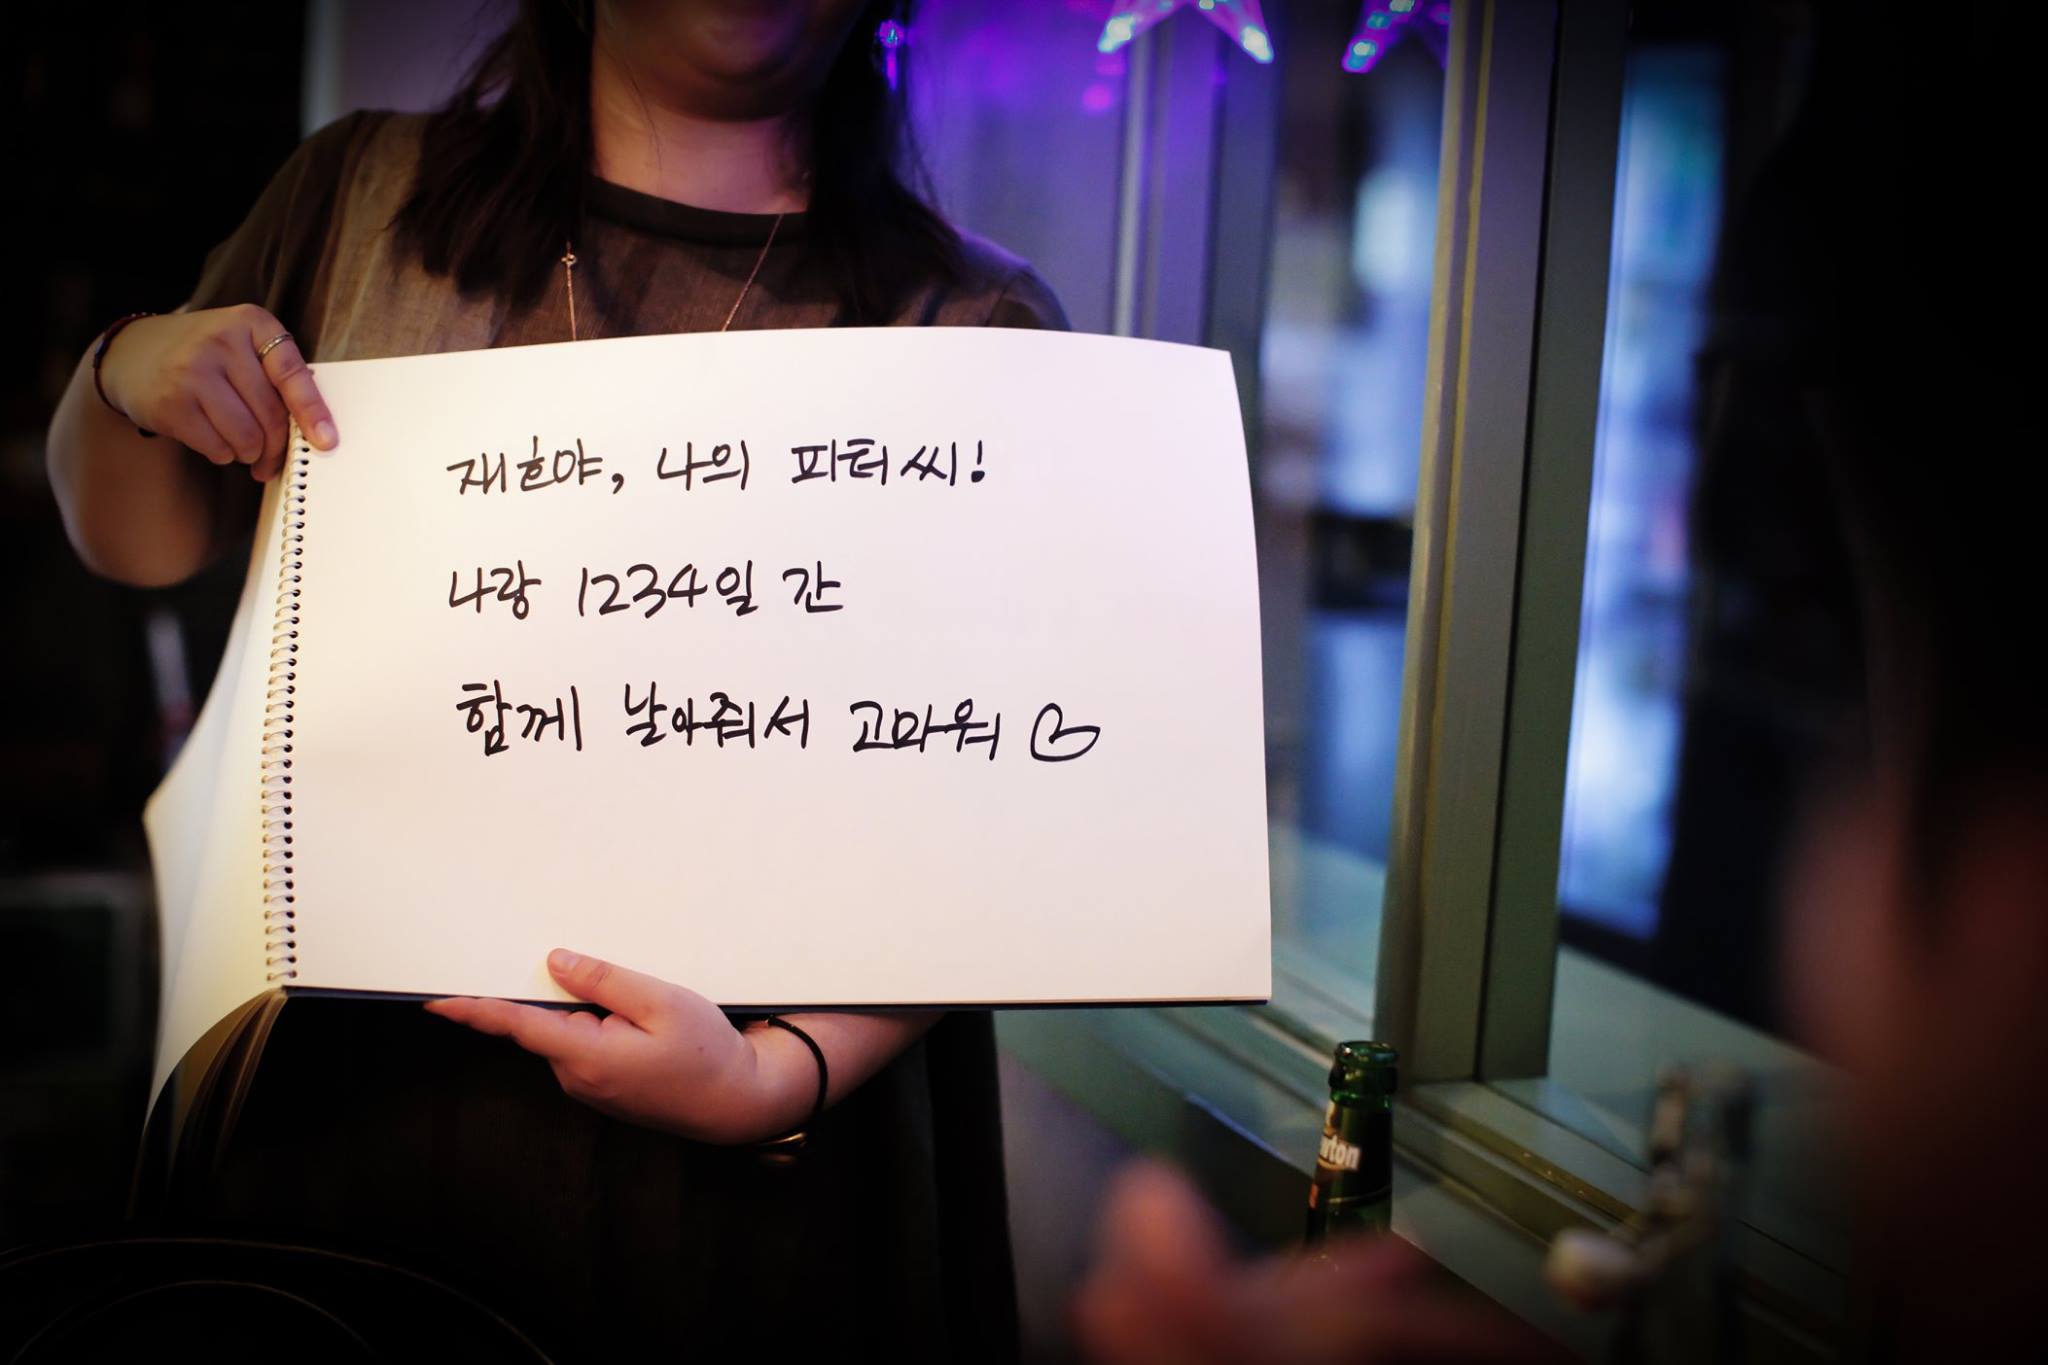 재흔야, 나의 피터씨!
나랑 1234일 간
함께 날아줘서 고마워 ♡
wton